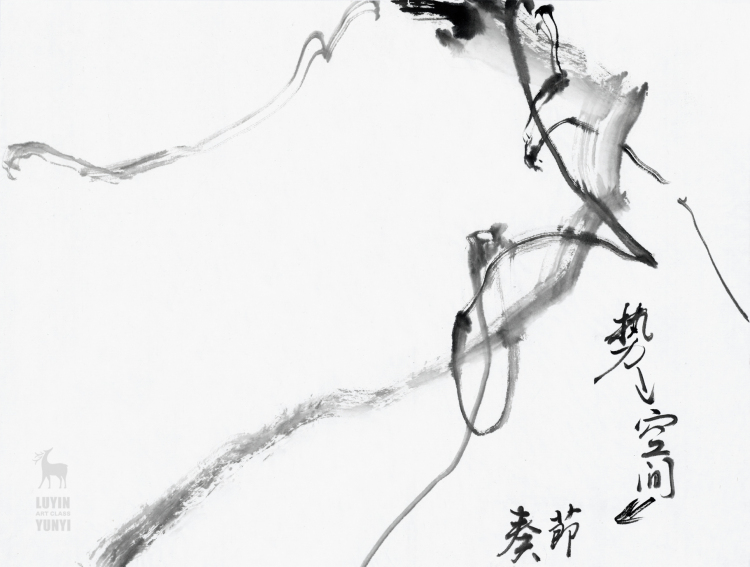 势
空间
节奏
LUYIN
ART CLASS
YUNYI